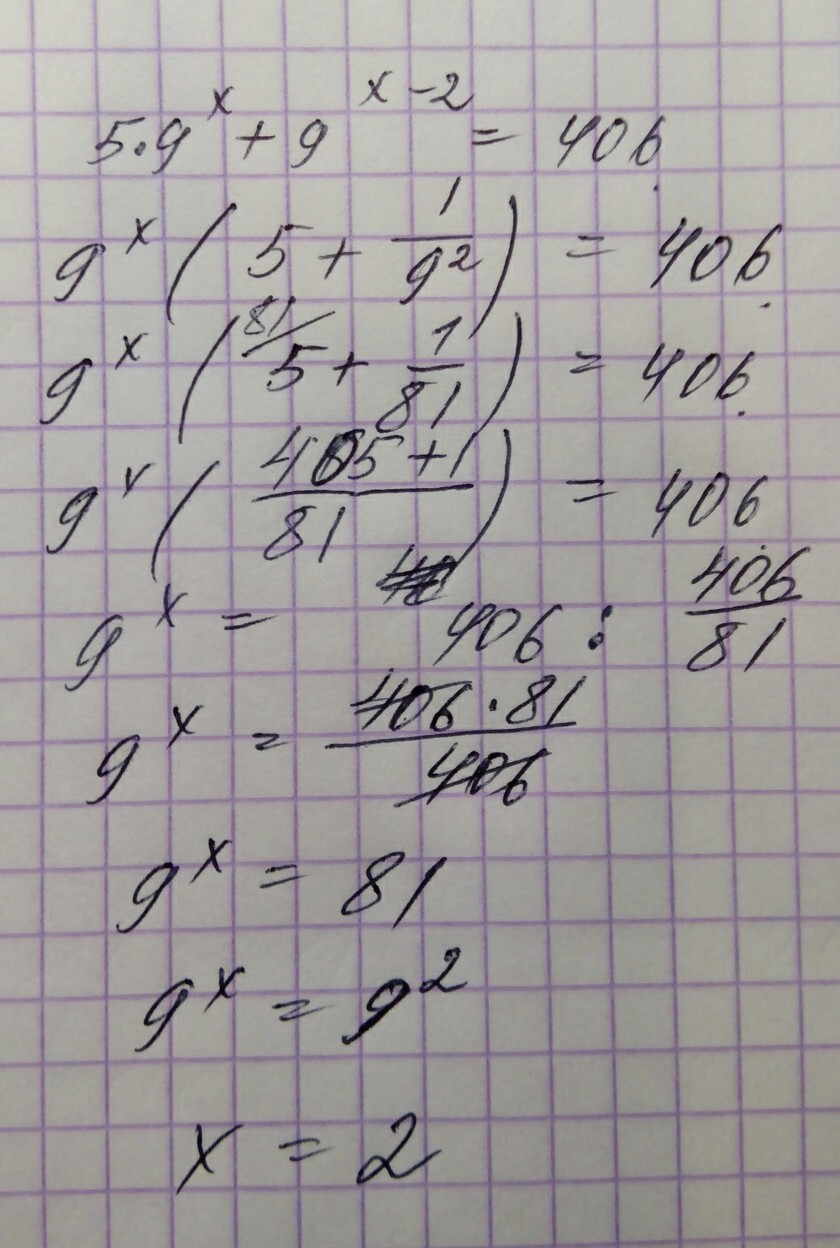 5·9^x + 9^(x-2) = 406
9^x (5 + 1/9²) = 406
9^x (81/ 5 + 1/81) = 406
9^x ((405+1)/81) = 406
9^x = 406 : 406/81
9^x = (406·81)/406
9^x = 81
9^x = 9²
x = 2